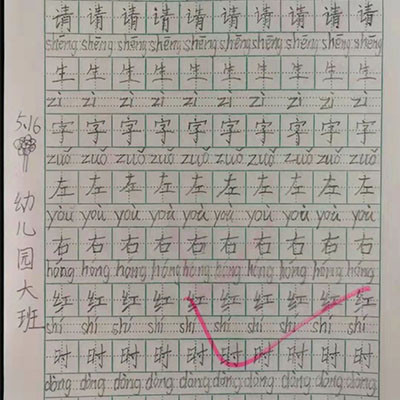 请 请 请 请 请 请 请 请 请
shēng shēng shēng shēng shēng shēng shēng shēng shēng
生 生 生 生 生 生 生 生 生
zì zì zì zì zì zì zì zì zì
字 字 字 字 字 字 字 字 字
zuǒ zuǒ zuǒ zuǒ zuǒ zuǒ zuǒ zuǒ zuǒ
左 左 左 左 左 左 左 左 左
yòu yòu yòu yòu yòu yòu yòu yòu yòu
右 右 右 右 右 右 右 右 右
hóng hóng hóng hóng hóng hóng hóng hóng hóng
红 红 红 红 红 红 红 红 红
shí shí shí shí shí shí shí shí shí
时 时 时 时 时 时 时 时 时
dòng dòng dòng dòng dòng dòng dòng dòng dòng
5.16
幼儿园大班